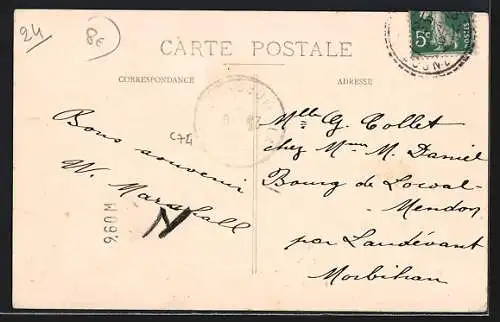 24
8€
CÀRTE POSTALE
CORRESPONDANCE
ADRESSE
5c
POSTES
C74
Bons souvenir
W. Marshall
N
960M
Mlle G. Collet
chez Mme M. Daniel
Bourg de Locoal-
-Mendon
par Landévant
Morbihan